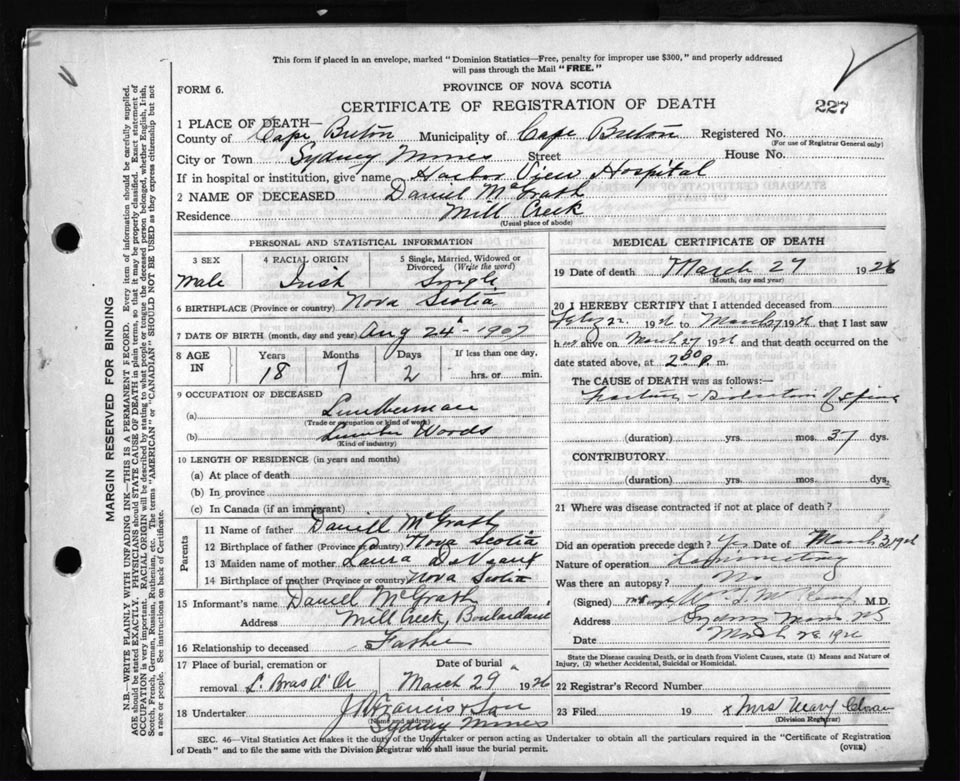 This form if placed in an envelope, marked "Dominion Statistics—Free, penalty for improper use $300," and properly addressed
will pass through the Mail "FREE."
FORM 6.
PROVINCE OF NOVA SCOTIA
CERTIFICATE OF REGISTRATION OF DEATH
227
1 PLACE OF DEATH—
County of Cape Breton Municipality of Cape Breton Registered No.
(For use of Registrar General only)
City or Town Sydney Mines Street House No.
If in hospital or institution, give name Harbor View Hospital
2 NAME OF DECEASED Daniel McGrath
Residence Mill Creek
(Usual place of abode)
PERSONAL AND STATISTICAL INFORMATION
3 SEX 4 RACIAL ORIGIN 5 Single, Married, Widowed or
Divorced. (Write the word)
Male Irish Single
6 BIRTHPLACE (Province or country) Nova Scotia
7 DATE OF BIRTH (month, day and year) Aug 24 - 1907
8 AGE IN Years Months Days If less than one day,
18 7 2 hrs. or min.
9 OCCUPATION OF DECEASED
(a) Lumberman
(Trade or occupation or kind of work)
(b) Lumber Woods
(Kind of industry)
10 LENGTH OF RESIDENCE (in years and months)
(a) At place of death
(b) In province
(c) In Canada (if an immigrant)
Parents
11 Name of father Daniell McGrath
12 Birthplace of father (Province or country) Nova Scotia
13 Maiden name of mother Laura
14 Birthplace of mother (Province or country) Nova Scotia
15 Informant's name Daniel McGrath
Address Mill Creek, Boulardarie
16 Relationship to deceased Father
17 Place of burial, cremation or Date of burial
removal L. Bras d'Or March 29 1926
18 Undertaker J A Francis & Son
(Name and address)
Sydney Mines
MEDICAL CERTIFICATE OF DEATH
19 Date of death March 27 1926
(Month, day and year)
20 I HEREBY CERTIFY that I attended deceased from
Feby 22 1926 to March 27 1926 that I last saw
him alive on March 27 1926 and that death occurred on the
date stated above, at 2 30 P. m.
The CAUSE of DEATH was as follows:—
Fracture - Dislocation of Spine
(duration) yrs. mos. 37 dys.
CONTRIBUTORY.
(duration) yrs. mos. dys.
21 Where was disease contracted if not at place of death?
Did an operation precede death? Yes Date of March 3, 1926
Nature of operation Laminectomy
Was there an autopsy? No
(Signed) M.D.
Address Sydney Mines NS
Date March 28 1926
State the Disease causing Death, or in death from Violent Causes, state (1) Means and Nature of
Injury, (2) whether Accidental, Suicidal or Homicidal.
22 Registrar's Record Number
23 Filed 19 Mrs Mary
(Division Registrar)
SEC. 46—Vital Statistics Act makes it the duty of the Undertaker or person acting as Undertaker to obtain all the particulars required in the "Certificate of Registration
of Death" and to file the same with the Division Registrar who shall issue the burial permit.
(OVER)
MARGIN RESERVED FOR BINDING
N.B.—WRITE PLAINLY WITH UNFADING INK—THIS IS A PERMANENT RECORD. Every item of information should be carefully supplied.
AGE should be stated EXACTLY. PHYSICIANS should STATE CAUSE OF DEATH in plain terms, so that it may be properly classified. Exact statement of
OCCUPATION is very important. RACIAL ORIGIN will be described by stating to what people or tongue the deceased person belonged, whether English, Irish,
Scotch, French, German, Russian, Ruthenian, etc. The terms "AMERICAN" or "CANADIAN" SHOULD NOT BE USED as they express citizenship but not
a race or people. See instructions on back of Certificate.